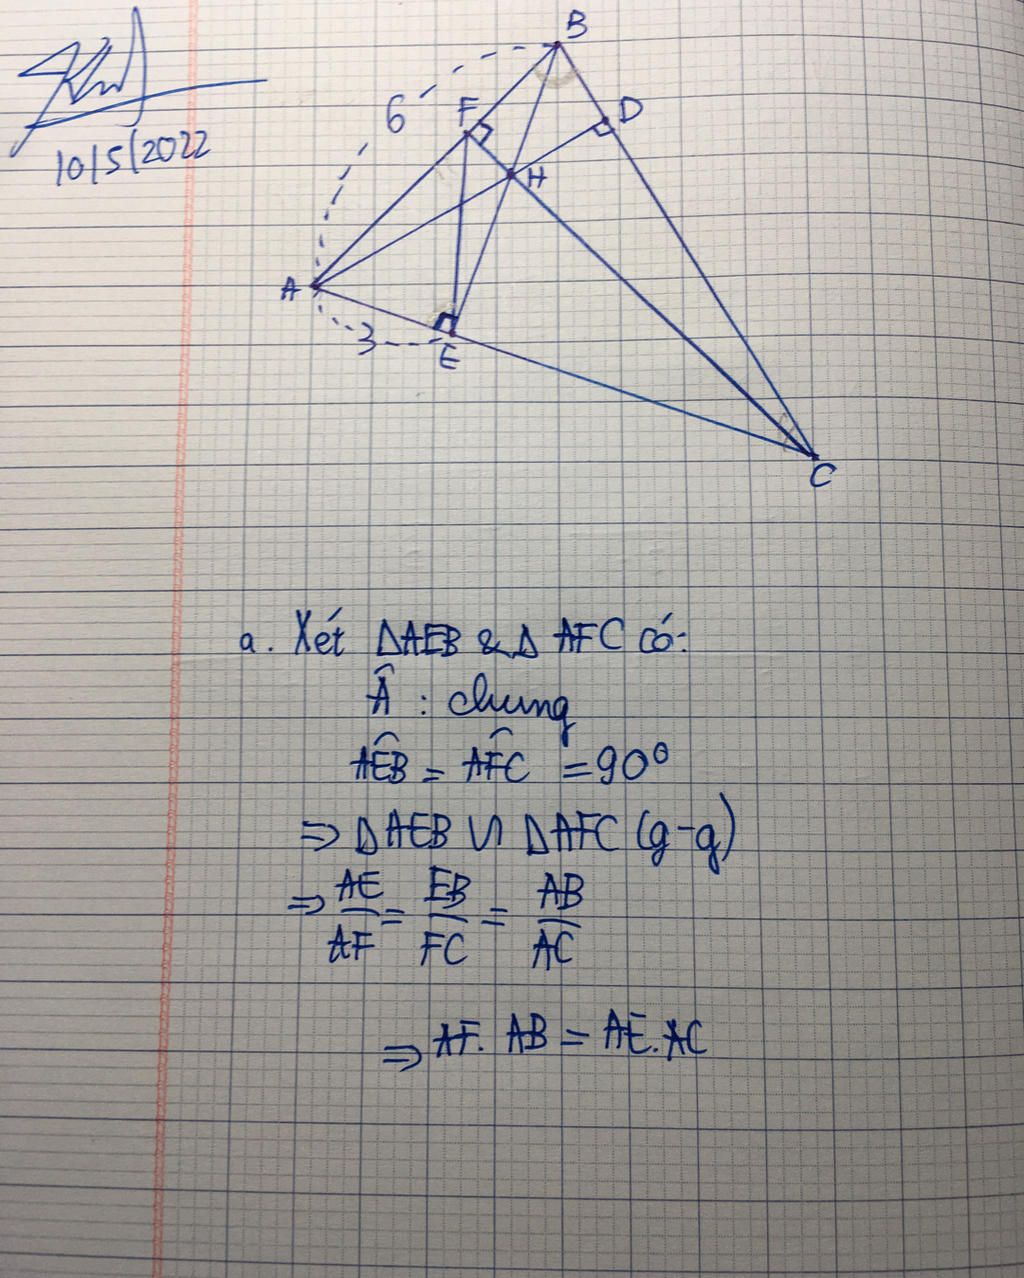 10/5/2022
B
6
F
D
H
A
3
E
C
a. Xét ΔAEB & Δ AFC có:
Â : chung
AÊB = AF̂C = 90⁰
⇒ ΔAEB ∽ ΔAFC (g-g)
⇒ AE/AF = EB/FC = AB/AC
⇒ AF. AB = AE. AC